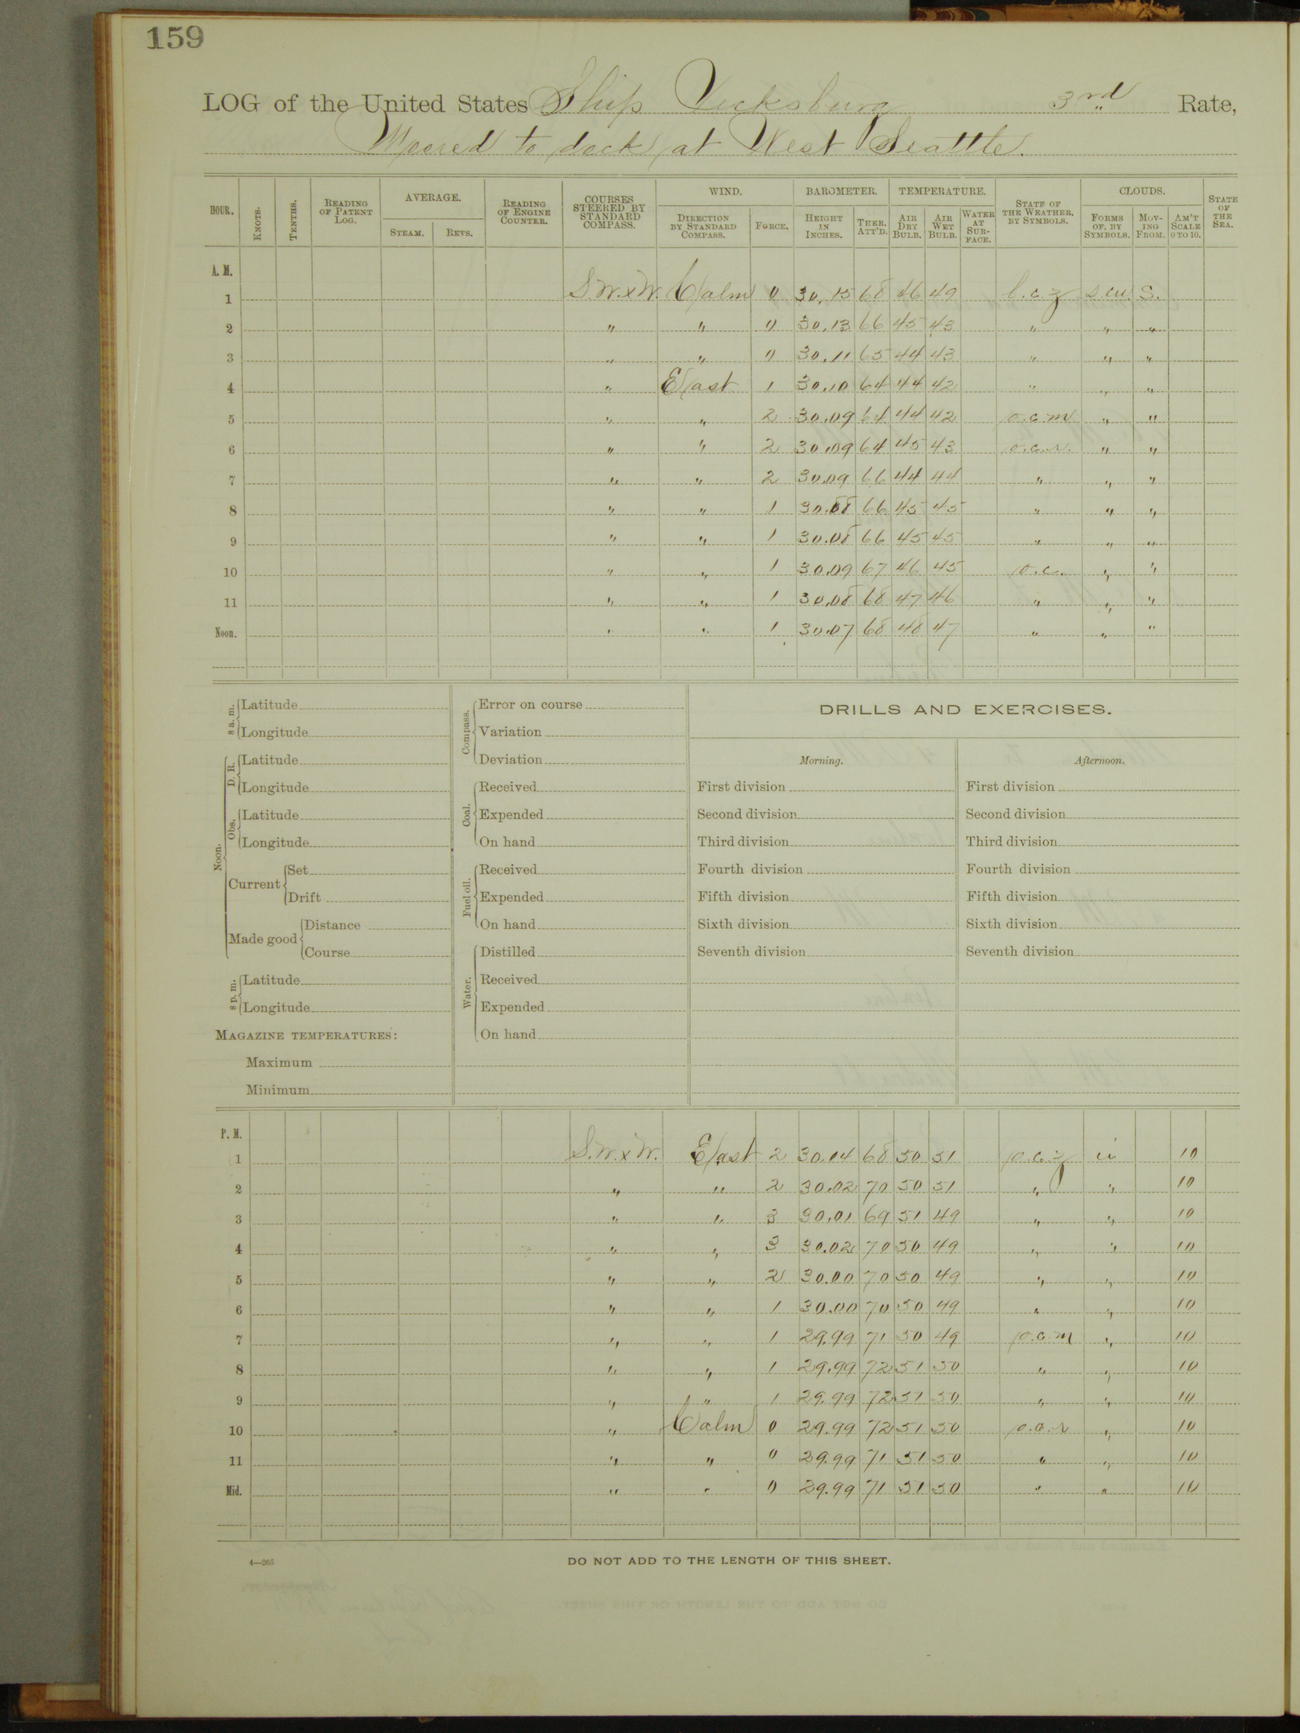 159
LOG of the United States Ship Vicksburg 3rd Rate,
Moored to dock at West Seattle.
HOUR. KNOTS. TENTHS. READING OF PATENT LOG. AVERAGE. STEAM. REVS. READING OF ENGINE COUNTER. COURSES STEERED BY STANDARD COMPASS. WIND. DIRECTION BY STANDARD COMPASS. FORCE. BAROMETER. HEIGHT IN INCHES. THER. ATT'D. TEMPERATURE. AIR DRY BULB. AIR WET BULB. WATER AT SURFACE. STATE OF THE WEATHER, BY SYMBOLS. CLOUDS. FORMS OF, BY SYMBOLS. MOVING FROM. AM'T SCALE 0 TO 10. STATE OF THE SEA.
A. M.
1 S.W.xW. Calm 0 30.15 68 46 49 b.c.z S.cu. S.
2 " " 0 30.13 66 45 43 " " "
3 " " 0 30.11 65 44 43 " " "
4 " East 1 30.10 64 44 42 " " "
5 " " 2 30.09 64 44 42 o.c.m " "
6 " " 2 30.09 64 45 43 o.c.r. " "
7 " " 2 30.09 66 44 44 " " "
8 " " 1 30.08 66 45 45 " " "
9 " " 1 30.08 66 45 45 " " "
10 " " 1 30.09 67 46 45 o.c. " "
11 " " 1 30.08 68 47 46 " " "
Noon. " " 1 30.07 68 48 47 " " "
8 a. m. Latitude
Longitude
Noon. D. R. Latitude
Longitude
Obs. Latitude
Longitude
Current Set
Drift
Made good Distance
Course
8 p. m. Latitude
Longitude
MAGAZINE TEMPERATURES:
Maximum
Minimum
Compass. Error on course
Variation
Deviation
Coal. Received
Expended
On hand
Fuel oil. Received
Expended
On hand
Water. Distilled
Received
Expended
On hand
DRILLS AND EXERCISES.
Morning.
First division
Second division
Third division
Fourth division
Fifth division
Sixth division
Seventh division
Afternoon.
First division
Second division
Third division
Fourth division
Fifth division
Sixth division
Seventh division
P. M.
1 S.W.xW. East 2 30.04 68 50 51 o.c.z ci 10
2 " " 2 30.02 70 50 51 " " 10
3 " " 3 30.01 69 51 49 " " 10
4 " " 3 30.02 70 50 49 " " 10
5 " " 2 30.00 70 50 49 " " 10
6 " " 1 30.00 70 50 49 " " 10
7 " " 1 29.99 71 50 49 o.c.m " 10
8 " " 1 29.99 72 51 50 " " 10
9 " " 1 29.99 72 51 50 " " 10
10 " Calm 0 29.99 72 51 50 o.c.r " 10
11 " " 0 29.99 71 51 50 " " 10
Mid. " " 0 29.99 71 51 50 " " 10
4—265
DO NOT ADD TO THE LENGTH OF THIS SHEET.